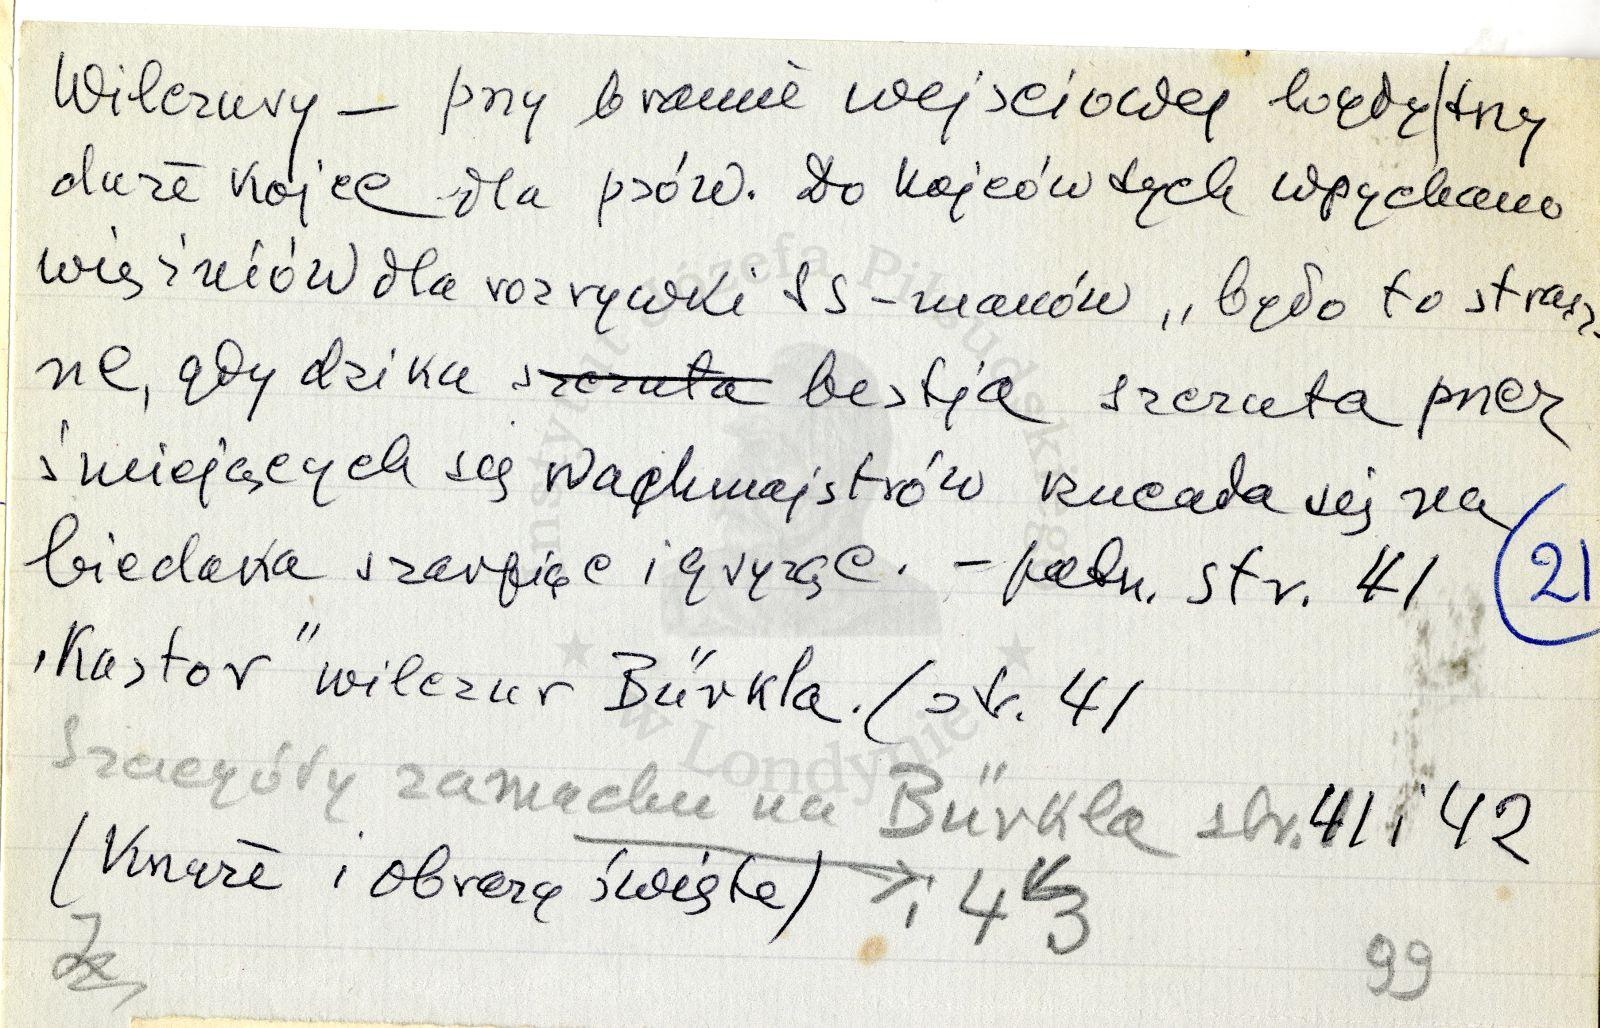 Wilczury – przy bramie wejściowej były trzy
duże kojce dla psów. Do kojców tych wpychano
więźniów dla rozrywki SS-manów „było to strasz
ne, gdy dzika szczuta bestja szczuta przez
śmiejących się wachmajstrów rzucała się na
biedaka szarpiąc i gryząc. – str. 41
21
„Kastor" wilczur Bürkla. (str. 41
Szczegóły zamachu na Bürkla str. 41 i 42
(Krzyże i obrazy święte) i 43
99
Instytut Józefa Piłsudskiego
w Londynie